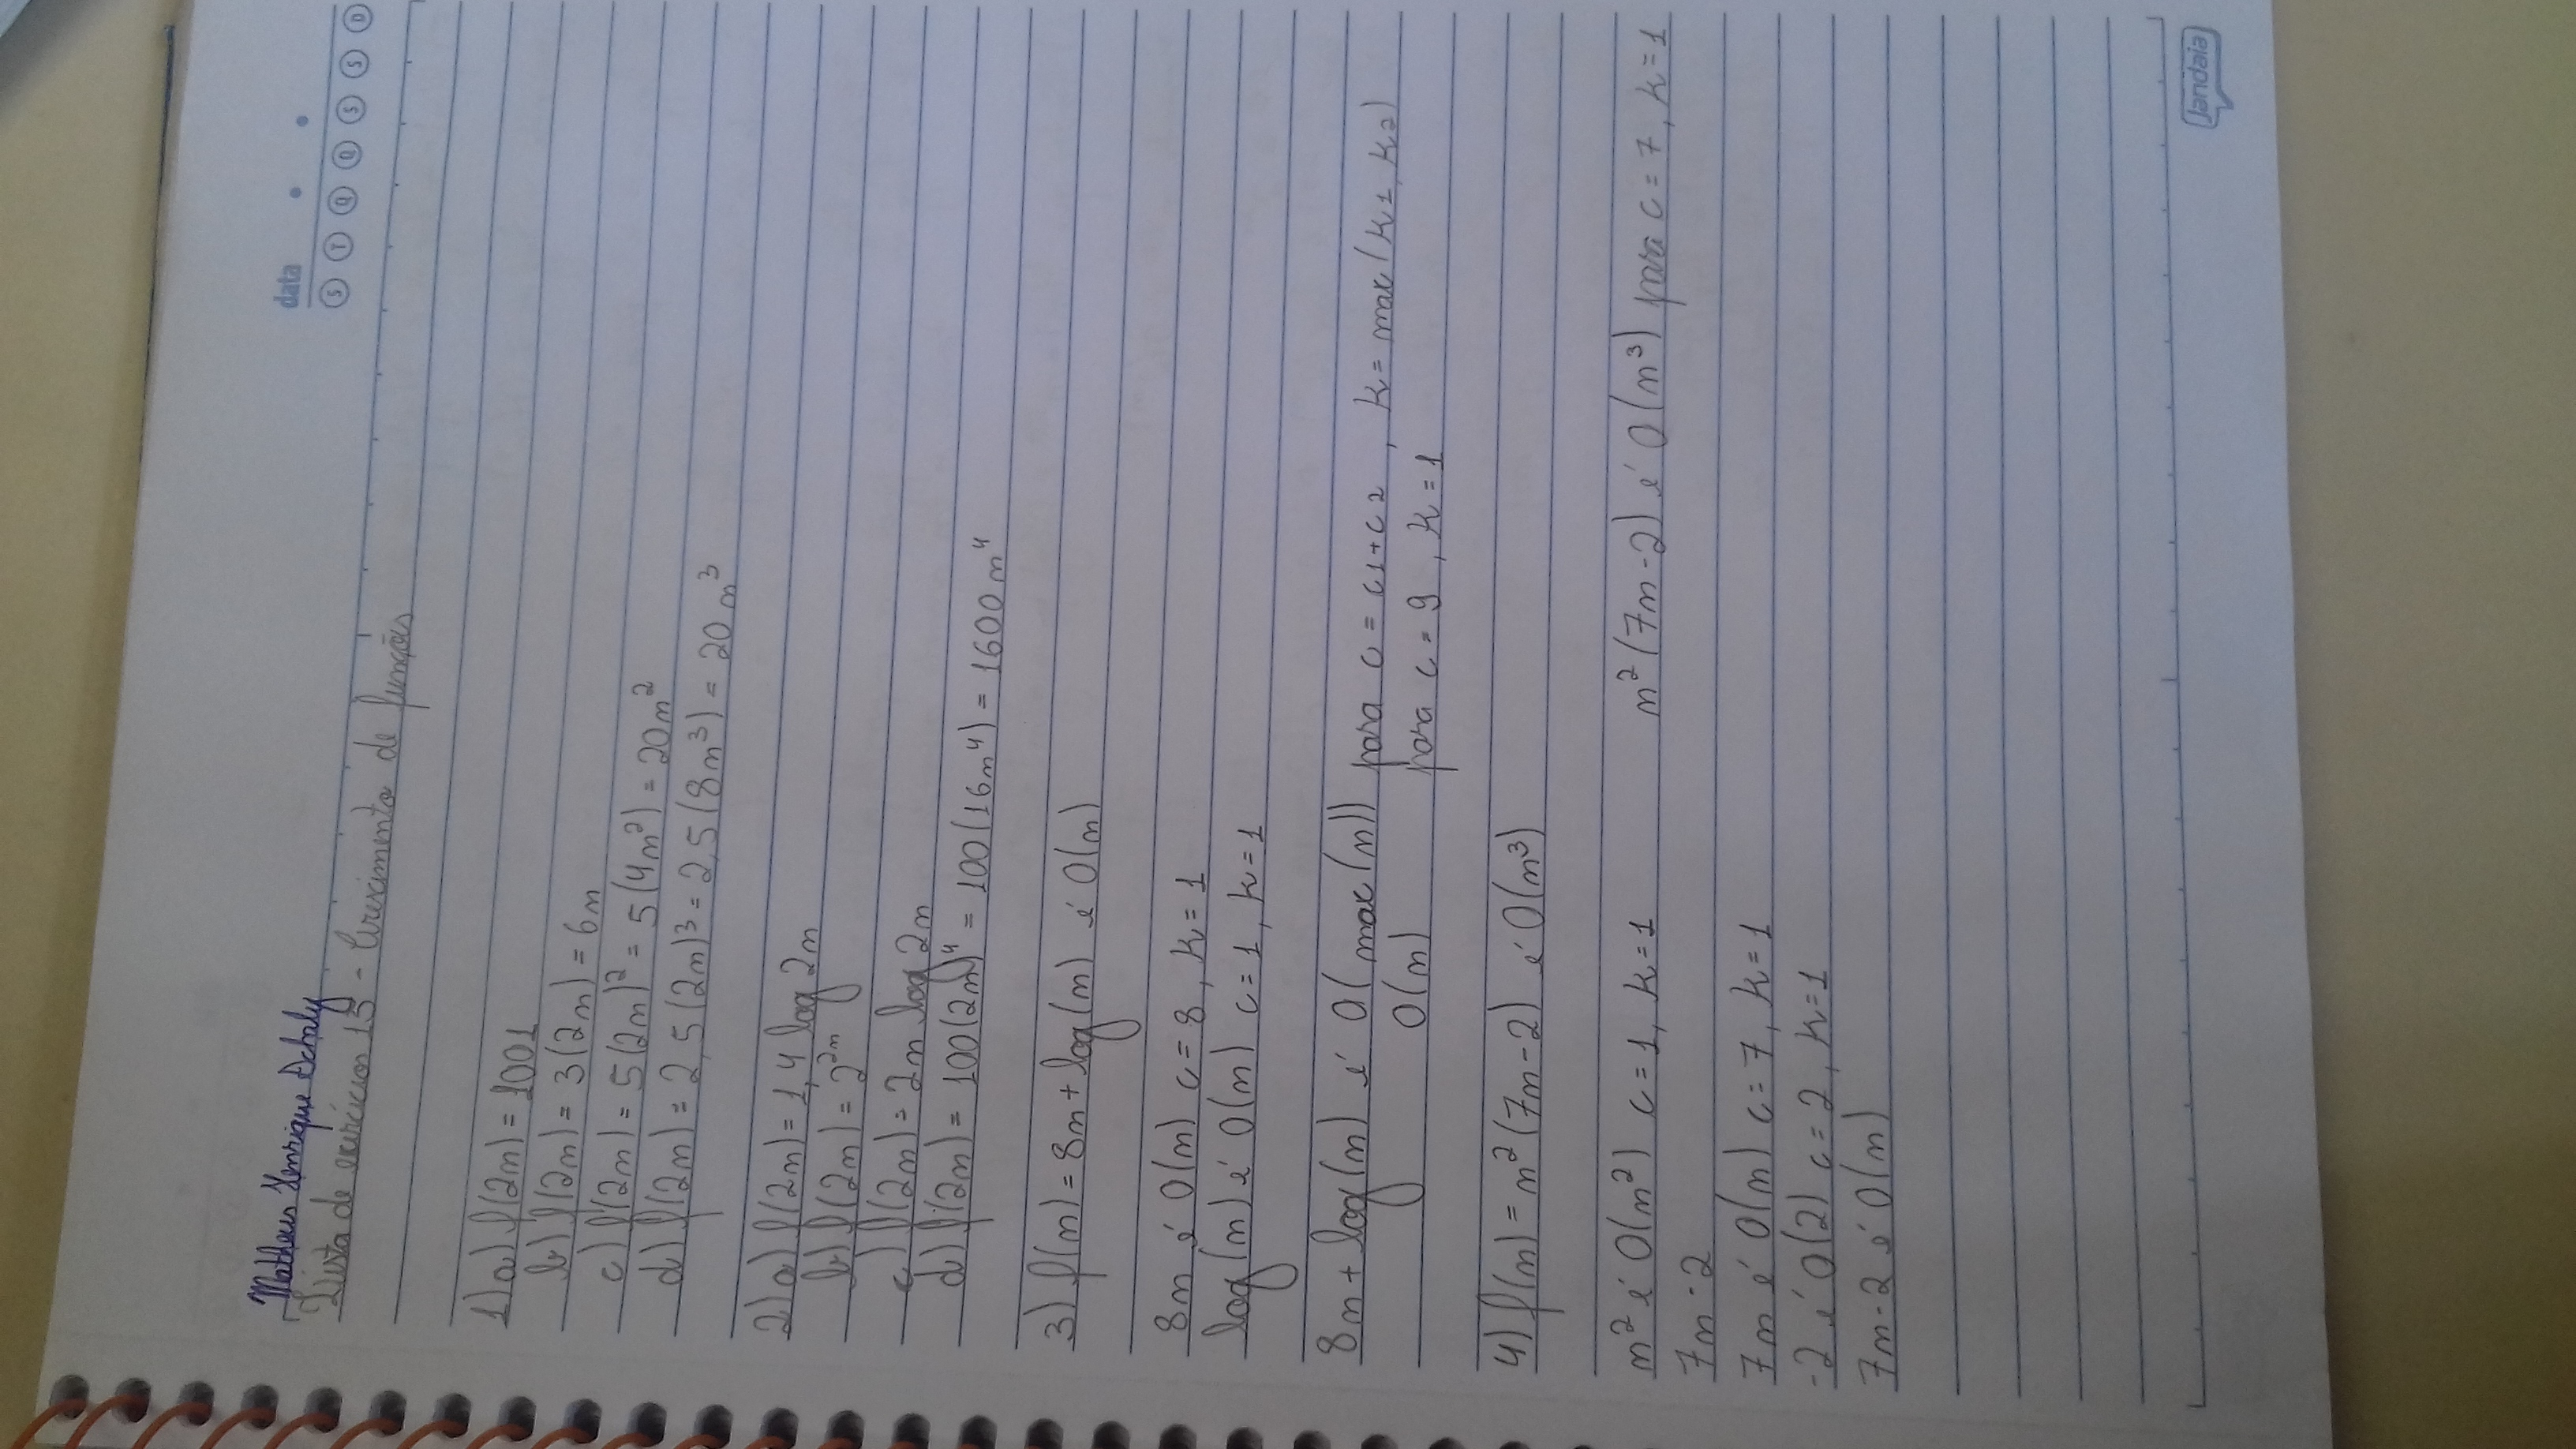 Matheus Henrique Schaly
data
S T Q Q S S D
Lista de exercícios 15 - Crescimento de funções
1) a) f(2n) = 1001
b) f(2n) = 3(2n) = 6n
c) f(2n) = 5(2n)² = 5(4n²) = 20n²
d) f(2n) = 2,5(2n)³ = 2,5(8n³) = 20n³
2) a) f(2n) = 1,4 log 2n
b) f(2n) = 2²ⁿ
c) f(2n) = 2n log 2n
d) f(2n) = 100(2n)⁴ = 100(16n⁴) = 1600n⁴
3) f(n) = 8n + log(n) é O(n)
8n é O(n) c = 8, k = 1
log(n) é O(n) c = 1, k = 1
8n + log(n) é O(max(n)) para c = c1 + c2, k = max(k1, k2)
O(n) para c = 9, k = 1
4) f(n) = n²(7n - 2) é O(n³)
n² é O(n²) c = 1, k = 1 n²(7n - 2) é O(n³) para c = 7, k = 1
7n - 2
7n é O(n) c = 7, k = 1
-2 é O(2) c = 2, k = 1
7n - 2 é O(n)
Jandaia